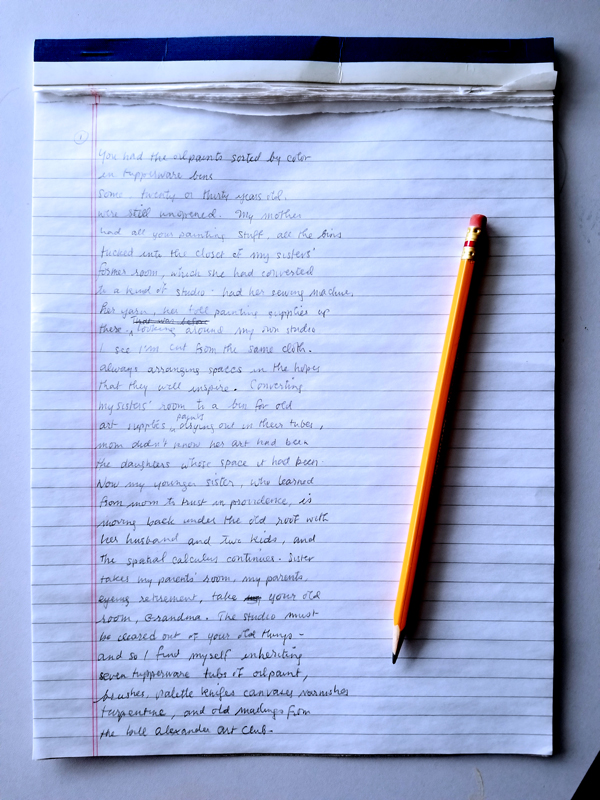 1
You had the oilpaints sorted by color
in tupperware bins
some twenty or thirty years old.
were still unopened. My mother
had all your painting stuff, all the bins
tucked into the closet of my sisters'
former room, which she had converted
to a kind of studio - had her sewing machine,
her yarn, her toll painting supplies up
That was before
there, looking around my own studio
I see I'm cut from the same cloth.
always arranging spaces in the hopes
that they will inspire. Converting
my sisters' room to a bin for old
paints
art supplies, drying out in their tubes,
mom didn't know her art had been
the daughters whose space it had been
Now my younger sister, who learned
from mom to trust in providence, is
moving back under the old roof with
her husband and two kids, and
the spatial calculus continues. Sister
takes my parents' room, my parents,
eyeing retirement, take your old
room, Grandma. The studio must
be cleared out of your old things -
and so I find myself inheriting
seven tupperware tubs of oilpaint,
brushes, palette knifes canvases varnishes
turpentine, and old mailings from
the bill alexander art club.